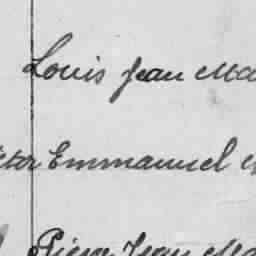 Louis Jean Ma
ctor Emmanuel
Pierre Jean Ma